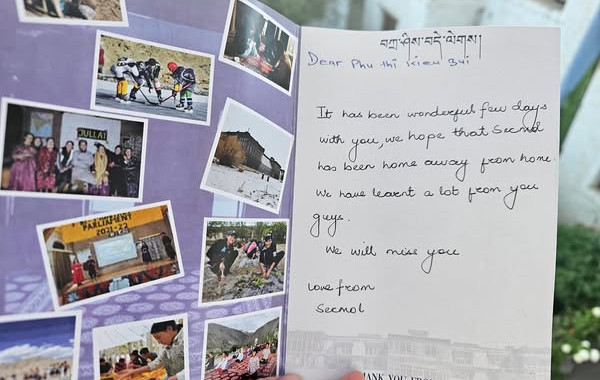 JULLAI
PARLIAMENT
2021-22
བཀྲ་ཤིས་བདེ་ལེགས།
Dear Phu thi Kieu Bui
It has been wonderful few days
with you, we hope that Secmol
has been home away from home.
We have learnt a lot from you
guys.
We will miss you
Love from
Secmol
THANK YOU FROM